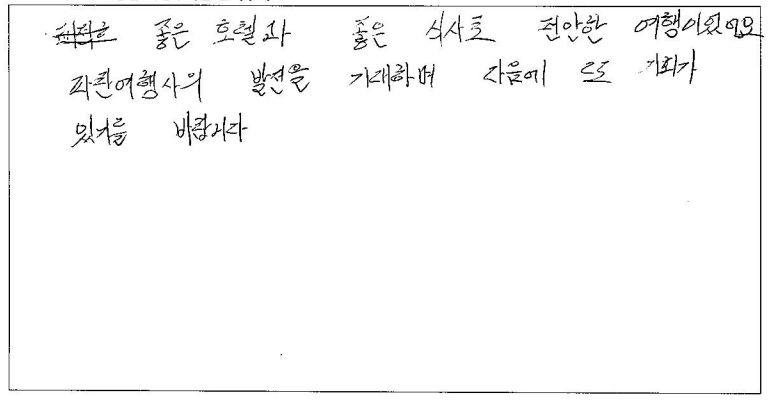 좋은 호텔과 좋은 식사로 편안한 여행이었어요
파란여행사의 발전을 기대하며 다음에 또 기회가
있기를 바랍니다